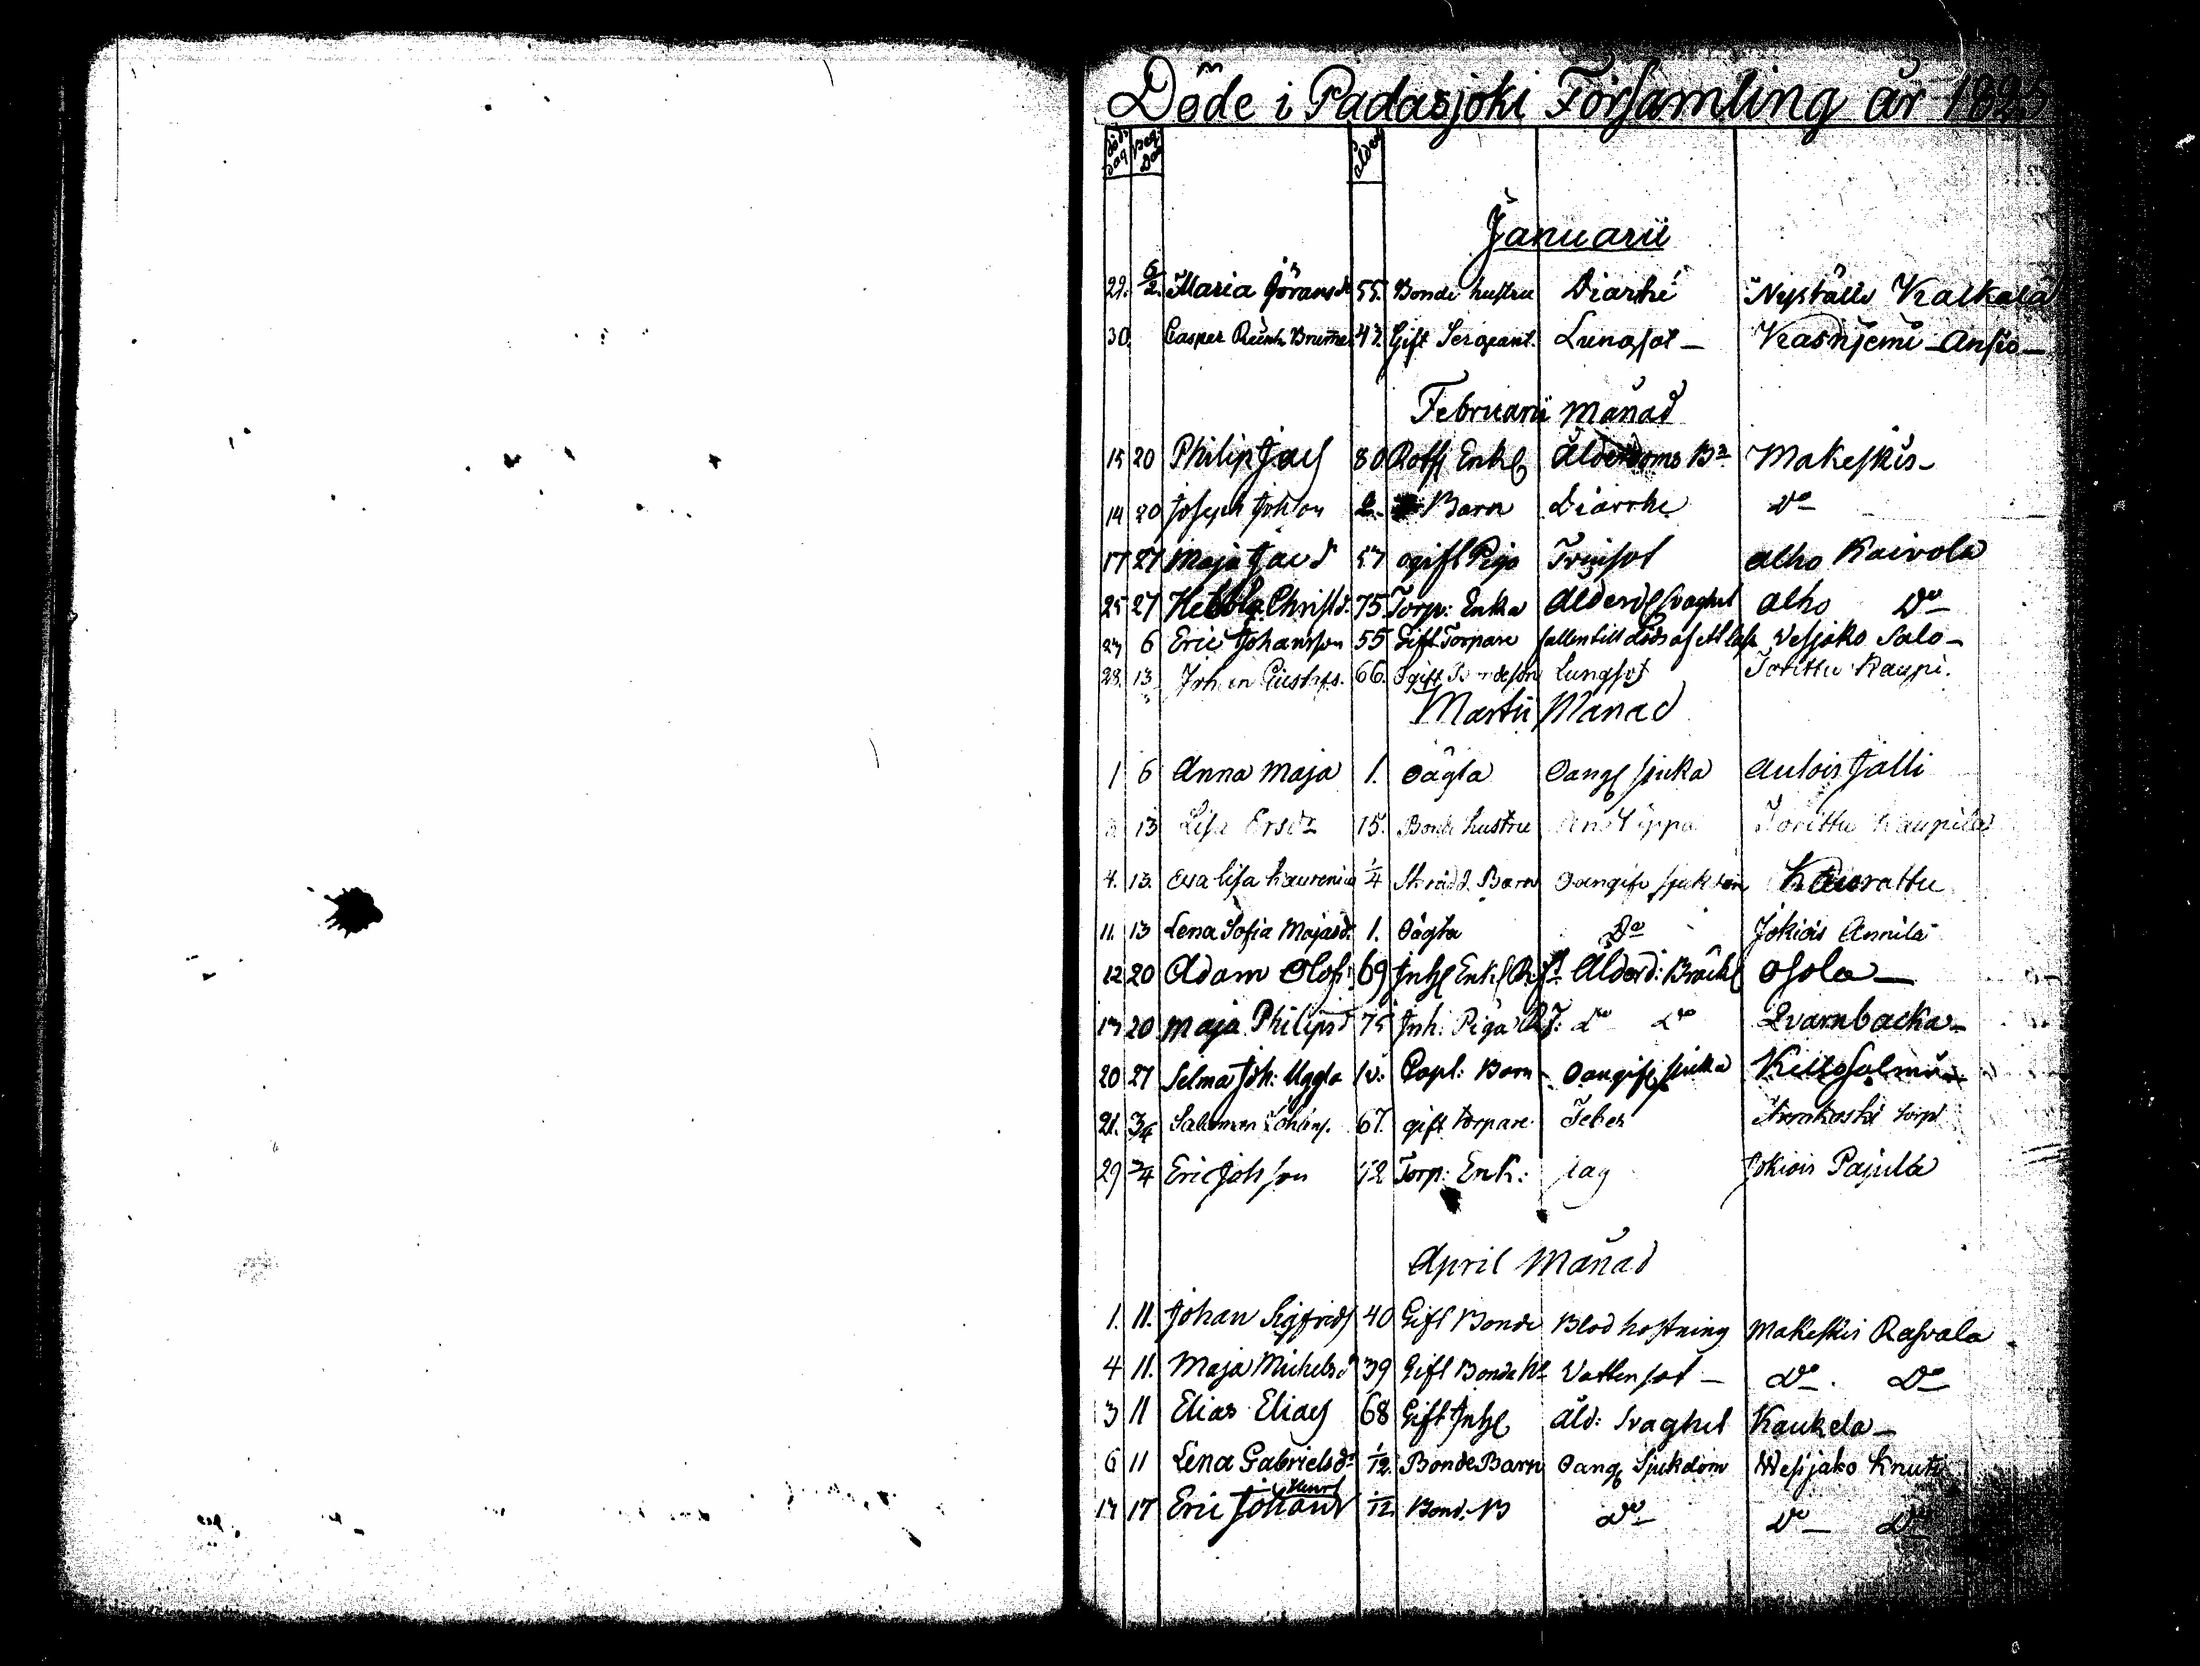 Döde i Padasjoki Församling år 1825
död dag Beg: Dag ålder
Januarii
29. 6/2. Maria Göransdr 55. Bonde hustru Diarhé Nystålts Kalkala
30. Casper Brume 43. Gift Sergeant. Lungsot - Kasnjemi - Ansio -
Februarii Månad
15 20 Philip Jacs 80 Rotf Enkl Ålderdoms Br. Makeskis -
14 20 Joseph Johson 2. Barn Diarrhe Do
17 27 Maja Jacd 57 ogift Piga Trinsot alho Kaivola
25 27 Christd. 75 Torp: Enka Alderd svaghet alho Do
27 6 Eric Johansson 55 Gift Torpare fallen till död af Wesjako Salo -
28. 13 Johan Gustafs. 66. Ogift Bondeson lungsot Torittu Kaupi.
Martii Månad
1 6 Anna Maja 1. Oägta Oang sjuka Aulois Jalli
13 Lisa Ersdr 15. Bonde hustru Torittu Kaupila
4. 13. Eva Lisa Laurenia 1/4 Barn Oangifv sjukdom
11. 13 Lena Sofia Majasd: 1. Oägta Do Jokiois Annila
12 20 Adam Olofs 69 Inh Enkl Ålderd: Bräckl Osola -
13 20 Maja Philipsd 75 Inh: Piga Do Do Qvarnbacka -
20 27 Selma Joh: Uggla Capl: Barn - Oangifv sjuka Kellosalmi
21. 3/4 Salomon 67. gift torpare Feber torp
29 3/4 Eric Johsson Torp: Enk: Jokiois Pajula
April Månad
1. 11. Johan Sigfrids 40 Gift Bonde Blod hostning Makeskis Rasvala
4 11. Maja Michelsd 39 Gift Bonde Hu Vattensot - Do. Do
3 11 Elias Elias 68 Gift Inh Åld: Svaghet Kaukela -
6 11 Lena Gabrielsdr 1/12. Bonde Barn Oang Sjukdom Wesjako Knuti
13 17 Eric Johans Henrs /12. Bond. B Do Do Do